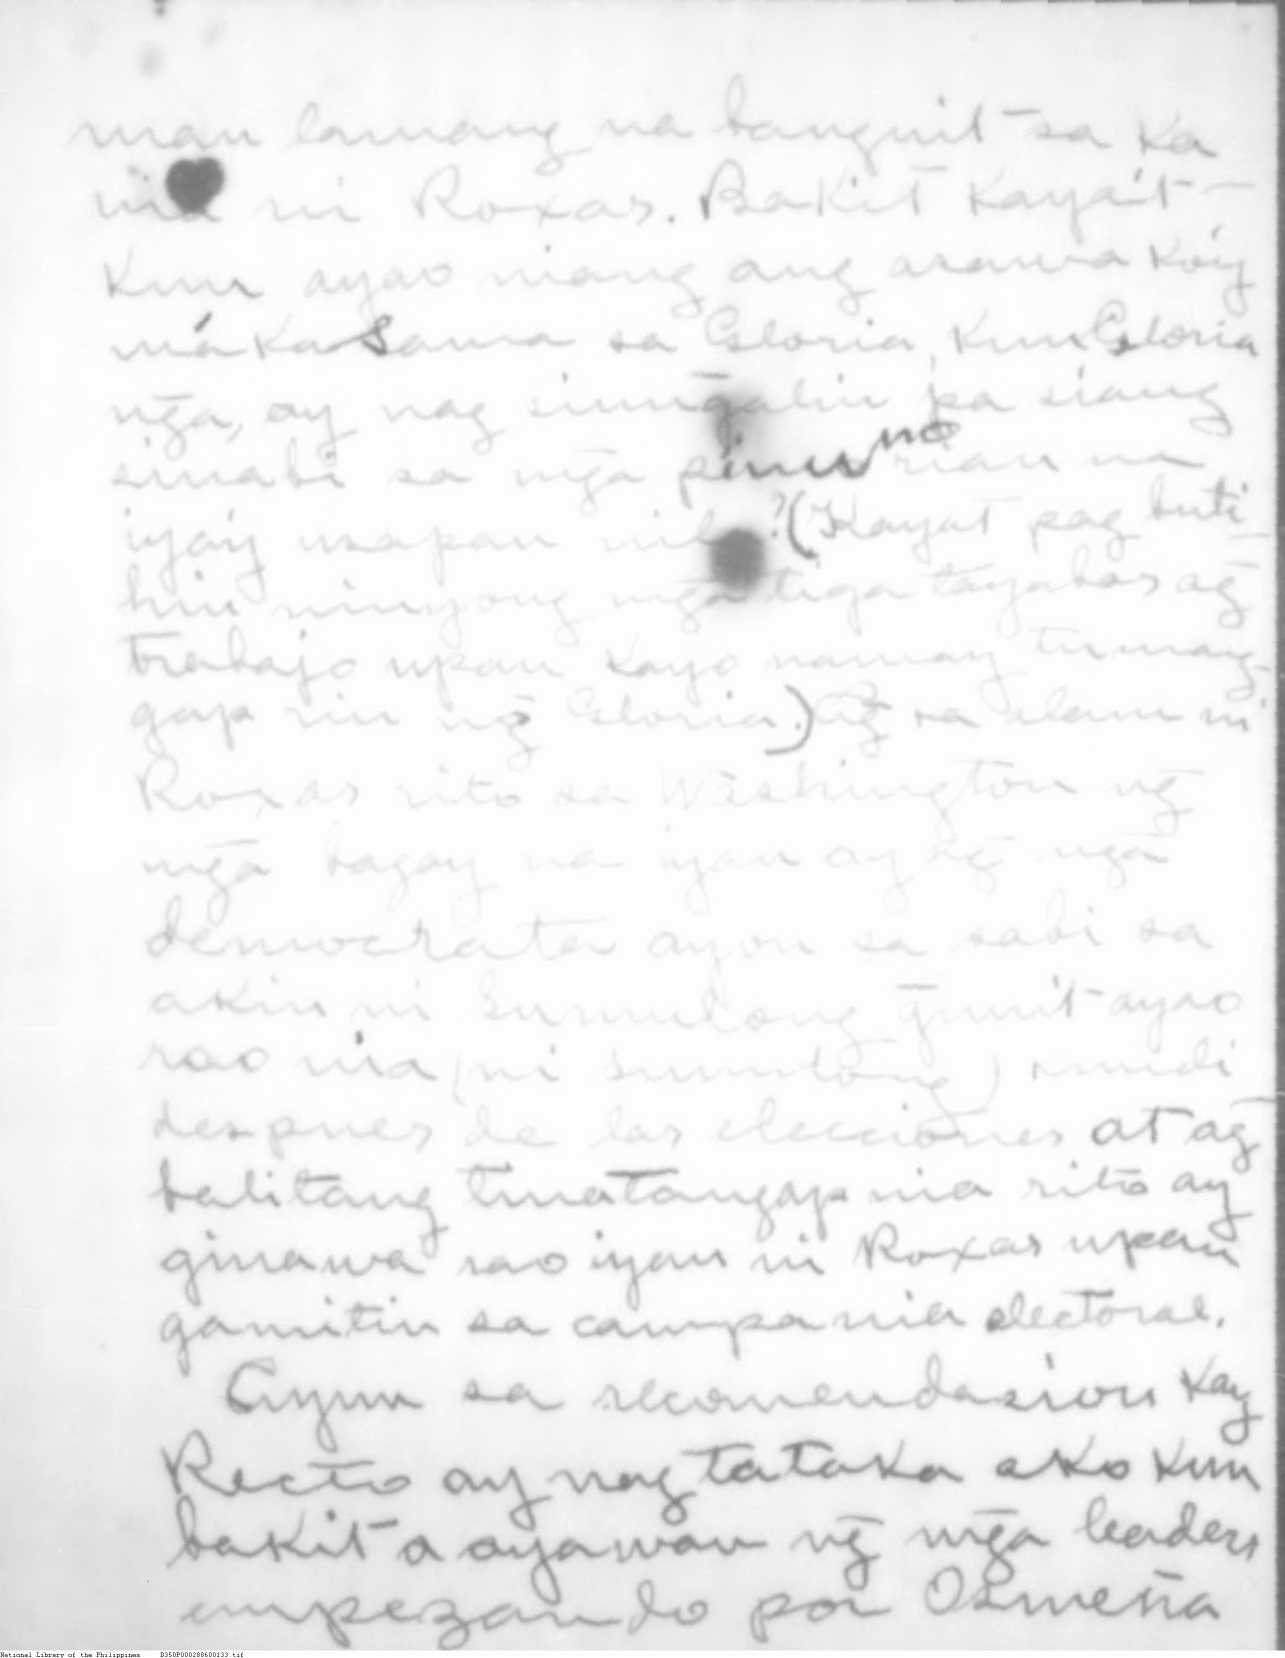 man lamang na banguit sa Ka
nia ni Roxas. Bakit Kayat-
Kun ayao niang ang asawa Ko'y
máKasama sa Gloria, Kun Gloria
n̄ga, ay nag sinun̄galin pa siang
sinabi sa mn̄ga pinu no rian na
iya'y usapan nila?(Kayat pag buti-
hin ninyong mn̄ga tiga tayabas ag̃
trabajo upan Kayo naman ay tumang-
gap rin ng̃ Gloria.) Ag̃ sa alam ni
Roxas rito sa Washington ng̃
mn̄ga bagay na iyan ay ag̃ mn̄ga
democrata ayon sa sabi sa
akin ni Sumulong gunit ayao
rao nia (ni Sumulong) rumdi
despues de las elecciones at ag̃
balitang tinatangap nia rito ay
ginawa rao iyan ni Roxas upan
gamitin sa campania electoral.
Ayun sa recomendasion Kay
Recto ay nag tataKa aKo Kun
baKit a ayawan ng̃ mn̄ga leaders
empezando por Osmeña
National Library of the Philippines D350P000288600133.tif